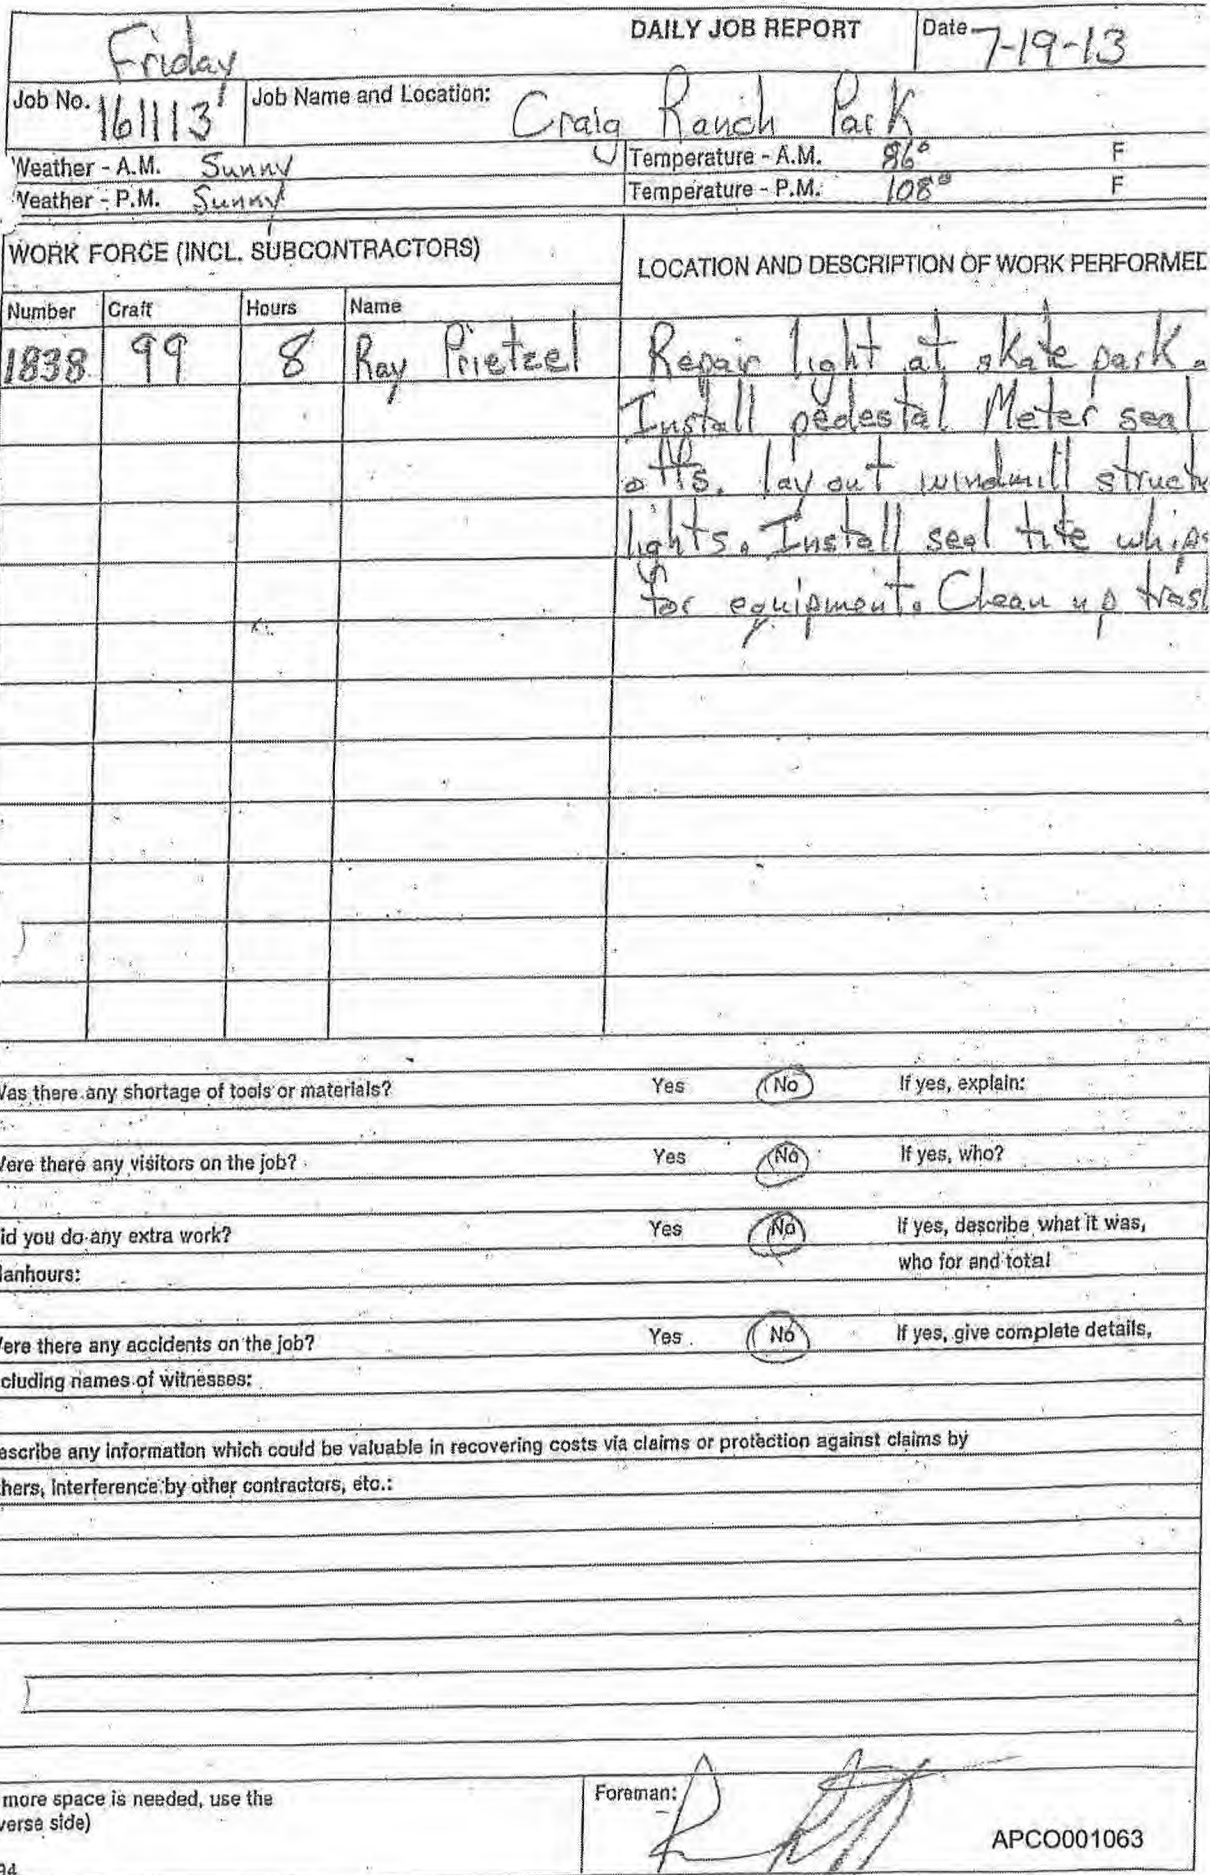 Friday DAILY JOB REPORT Date 7-19-13
Job No. 161113 Job Name and Location: Craig Ranch Park
Weather - A.M. Sunny Temperature - A.M. 86° F
Weather - P.M. Sunny Temperature - P.M. 108° F
WORK FORCE (INCL. SUBCONTRACTORS) LOCATION AND DESCRIPTION OF WORK PERFORMED
Number Craft Hours Name
1838 99 8 Ray Prietzel Repair light at skate park.
Install pedestal Meter seal
offs. lay out windmill struct
lights. Install seal tite whips
for equipment. Clean up tras
Was there any shortage of tools or materials? Yes No If yes, explain:
Were there any visitors on the job? Yes No If yes, who?
id you do any extra work? Yes No If yes, describe what it was,
anhours: who for and total
ere there any accidents on the job? Yes No If yes, give complete details,
cluding names of witnesses:
escribe any information which could be valuable in recovering costs via claims or protection against claims by
hers, interference by other contractors, etc.:
more space is needed, use the
verse side)
Foreman:
APCO001063
94